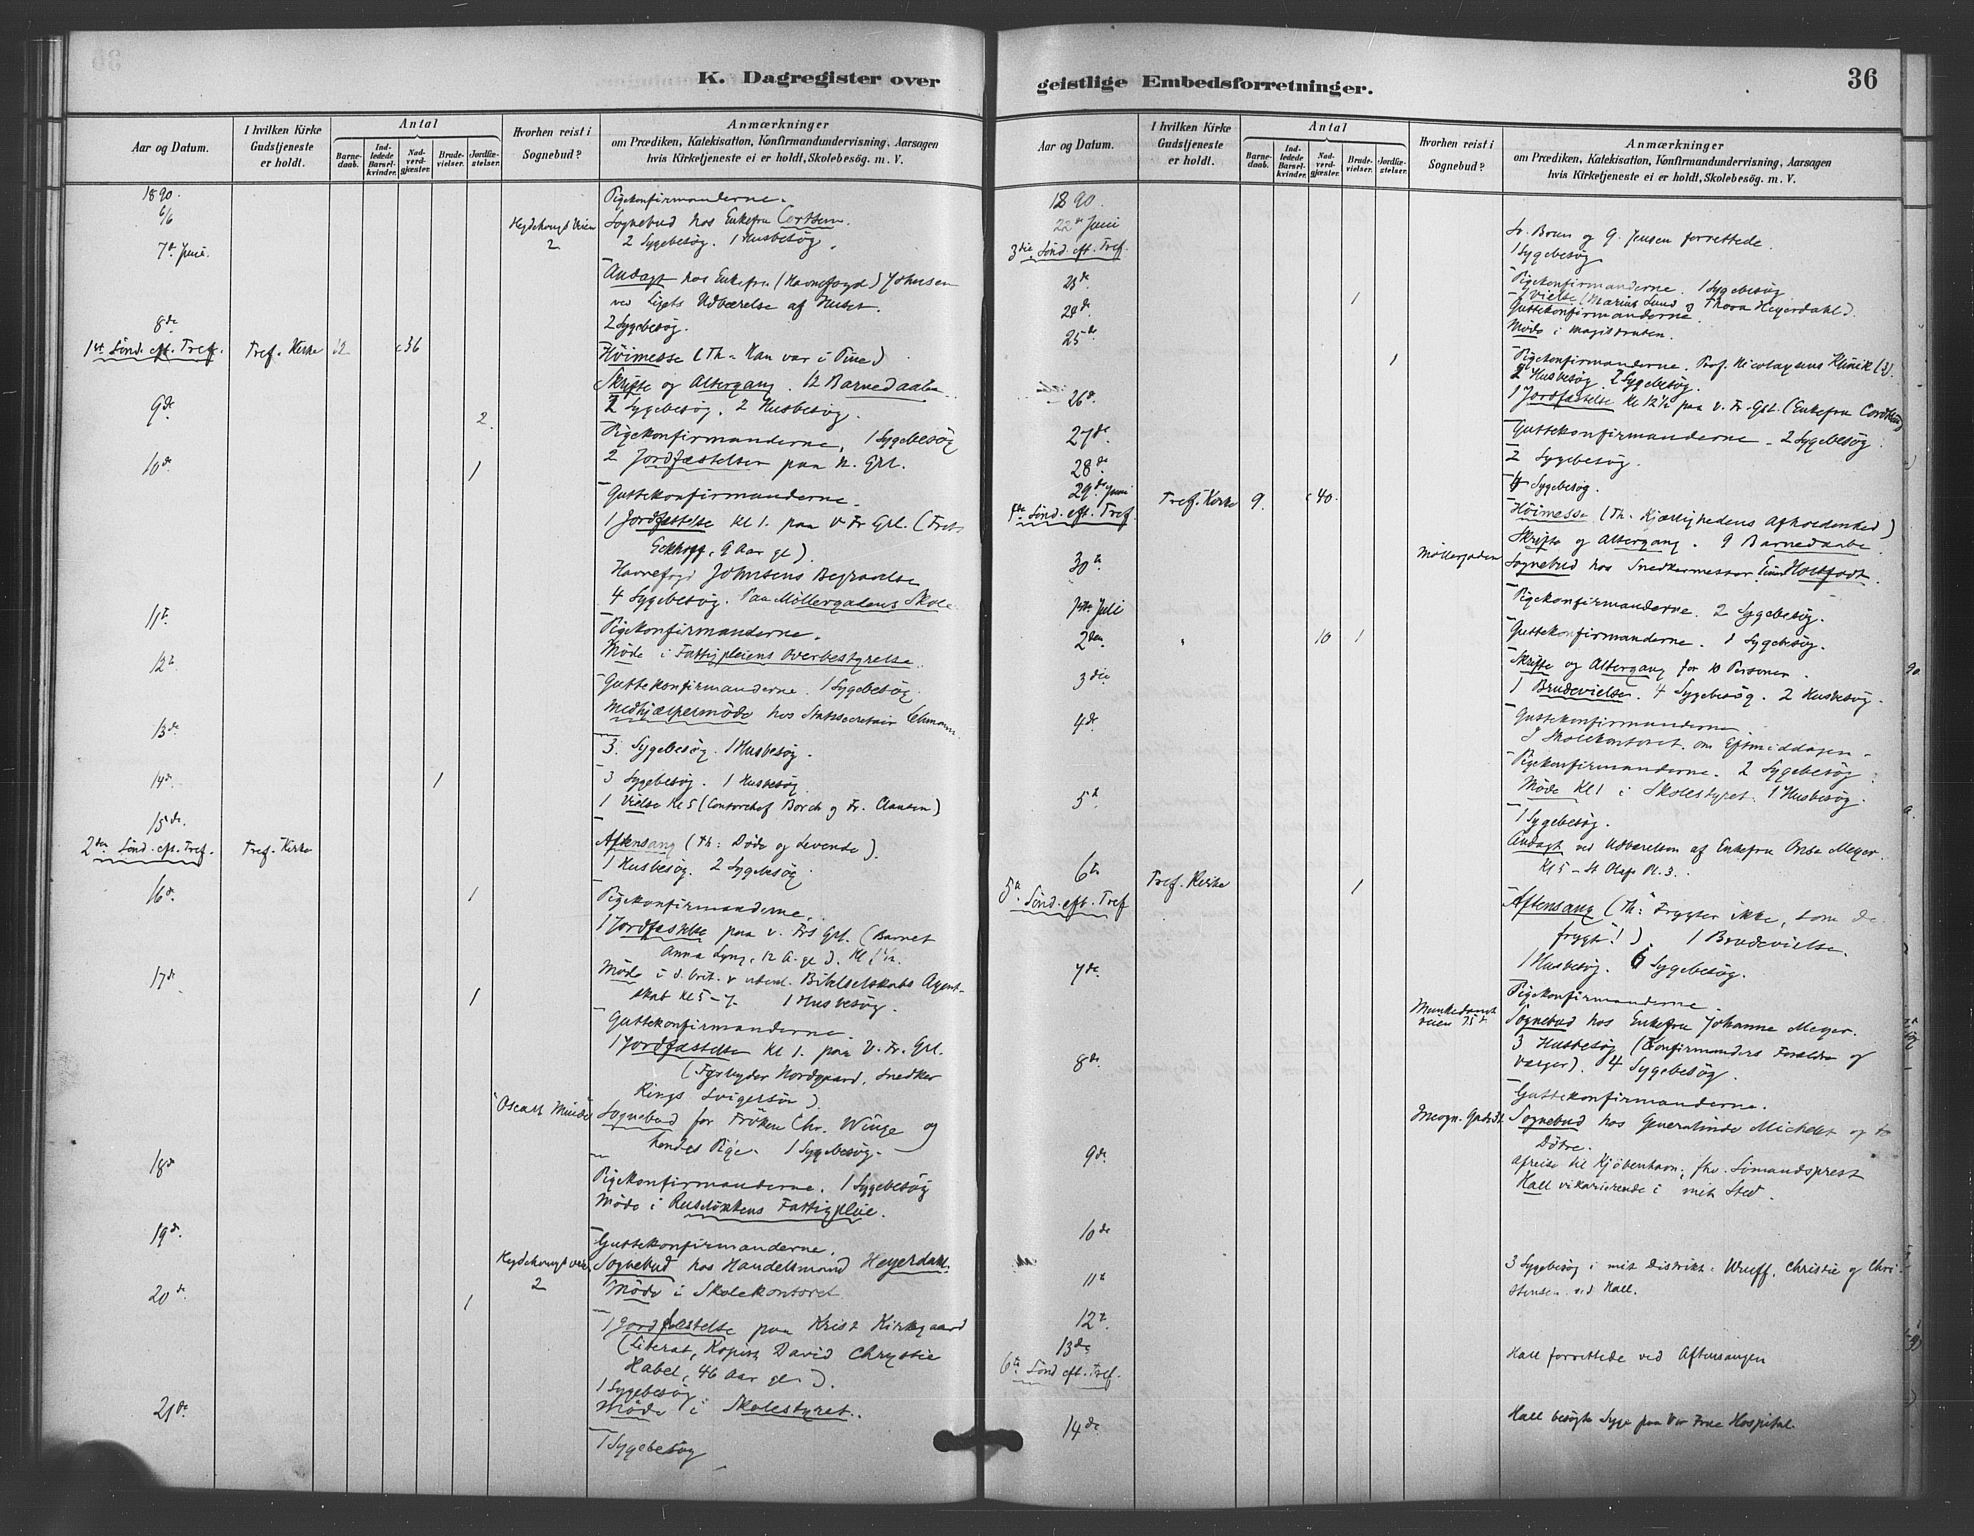 K. Dagregister over
Aar og Datum.
I hvilken Kirke Gudstjeneste er holdt.
Antal
Barne-daab.
Ind-ledede Barsel-kvinder.
Nad-verd-gjæster.
Brude-vielser.
Jordfæ-stelser.
Hvorhen reist i Sognebud?
Anmærkninger
om Prædiken, Katekisation, Konfirmandundervisning, Aarsagen
hvis Kirketjeneste ei er holdt, Skolebesøg. m. V.
1890.
6/6
Pigekonfirmanderne.
Sognebud hos Enkefru
2 Sygebesøg. 1 Husbesøg.
2
7de Juni.
Andagt hos Enkefru (Havnefogd) Johnsen
ved Ligets Udbærelse af Huset.
2 Sygebesøg.
8de
1ste Sønd. eft. Tref. Tref. Kirke 12 c 36
Høimesse (Th:
Skrifte og Altergang. 12 Barnedaabe
2 Sygebesøg. 2 Husbesøg.
9de 2
Pigekonfirmanderne. 1 Sygebesøg
2 Jordfæstelser paa N. Grl.
10de 1
Guttekonfirmanderne
1 Jordfæstelse Kl 1. paa V Fr Grl. (
9 Aar gl)
Havnefogd Johnsens Begravelse
4 Sygebesøg. Paa Møllergadens Skole
11te
Pigekonfirmanderne.
Møde i Fattigpleiens Overbestyrelse.
12te
Guttekonfirmanderne. 1 Sygebesøg.
Medhjælpermøde hos Statssecretair Lehmann.
13de
3 Sygebesøg. 1 Husbesøg.
14de 1
3 Sygebesøg. 1 Husbesøg
1 Vielse Kl 5 (Contorchef Borch og Fr. Clausen)
15de
2den Sønd. eft. Tref. Tref. Kirke
Aftensang (Th: Døde og Levende).
1 Husbesøg. 2 Sygebesøg.
16de 1
Pigekonfirmanderne.
1 Jordfæstelse paa V. Frs Grl. (Barnet
Anna 12 A. gl).
Møde i d. brit. & udenl. Bibelselskabs Agent-
skab Kl 5-7. 1 Husbesøg.
17de 1
Guttekonfirmanderne
1 Jordfæstelse Kl 1. paa V. Fr. Grl.
(Fyrbyder Nordgaard, Snedker
Rings Svigersøn).
Oscars
Sognebud for Frøken Chr. Winge og
hendes Pige. 1 Sygebesøg.
18de
Pigekonfirmanderne. 1 Sygebesøg
Møde i Ruseløkkens Fattigpleie.
19de
Guttekonfirmanderne.
Sognebud hos Handelsmand Heyerdahl.
2
Møde i Skolekontoret.
20de 1
1 Jordfæstelse paa Krist Kirkegaard
(Literat, Kopist David Chrystie
Habel, 46 Aar gl.).
1 Sygebesøg
Møde i Skolestyret.
21de
1 Sygebesøg
geistlige Embedsforretninger.
36
Aar og Datum.
I hvilken Kirke Gudstjeneste er holdt.
Antal
Barne-daab.
Ind-ledede Barsel-kvinder.
Nad-verd-gjæster.
Brude-vielser.
Jordfæ-stelser.
Hvorhen reist i Sognebud?
Anmærkninger
om Prædiken, Katekisation, Konfirmandundervisning, Aarsagen
hvis Kirketjeneste ei er holdt, Skolebesøg. m. V.
1890.
22de Juni
3die Sønd. eft. Tref.
Brun og G. Jensen forrettede.
1 Sygebesøg
23de
Pigekonfirmanderne. 1 Sygebesøg
1
1 Vielse (Marius Lund og Thora Heyerdahl)
24de
Guttekonfirmanderne.
Møde i Magistraten.
25de 1
Pigekonfirmanderne. Prof. Nicolaysens Klinik (3).
2 Husbesøg. 2 Sygebesøg.
1 Jordfæstelse Kl 12½ paa V. Fr. Grl. (Enkefru
26de
Guttekonfirmanderne. 2 Sygebesøg.
27de
2 Sygebesøg.
28de
4 Sygebesøg.
29de Juni
4de Sønd. eft. Tref. Tref. Kirke 9. c 40.
Høimesse (Th: Kjærlighedens Afholdenhed)
Skrifte og Altergang. 9 Barnedaabe.
30te
Møllergaden
Sognebud hos Snedkermester
1ste Juli
Pigekonfirmanderne. 2 Sygebesøg.
2den " 10 1
Guttekonfirmanderne. 1 Sygebesøg.
Skrifte og Altergang for 10 Personer.
1 Brudevielse. 4 Sygebesøg. 2 Husbesøg.
3die
Guttekonfirmanderne
I Skolekontoret om Eftmiddagen
4de
Pigekonfirmanderne. 2 Sygebesøg.
Møde Kl 1 i Skolestyret. 1 Husbesøg.
5te
1 Sygebesøg.
Andagt ved Udbærelsen af Enkefru Meyer.
Kl 5 - St Olafs Pl. 3.
6te
5te Sønd. eft. Tref Tref. Kirke 1
Aftensang (Th: Frygter ikke, som de
frygte!). 1 Brudevielse.
1 Husbesøg. 6 Sygebesøg.
7de
Pigekonfirmanderne.
Sognebud hos Enkefru Johanne Meyer.
3 Husbesøg (Konfirmanders Forældre og
Værger). 4 Sygebesøg.
8de
Guttekonfirmanderne.
Sognebud hos Generalinde Michelet og to
Døtre.
9de
Afreise til Kjøbenhavn, fhv. Sømandsprest
Hall vikarierende i mit Sted.
10de
11te
3 Sygebesøg i mit Distrikt: Wulff, Christie og Chri-
stensen ved Hall.
12te
13de
6te Sønd. eft. Tref.
Hall forrettede ved Aftensangen
14de
Hall besøgte Syge paa Vor Frue Hospital.